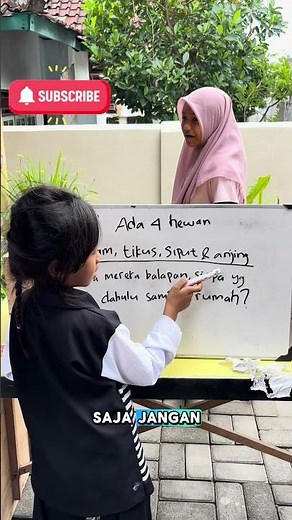 SUBSCRIBE
Ada 4 hewan
tikus, siput & anjing
mereka balapan, yg
dahulu rumah?
SAJA JANGAN